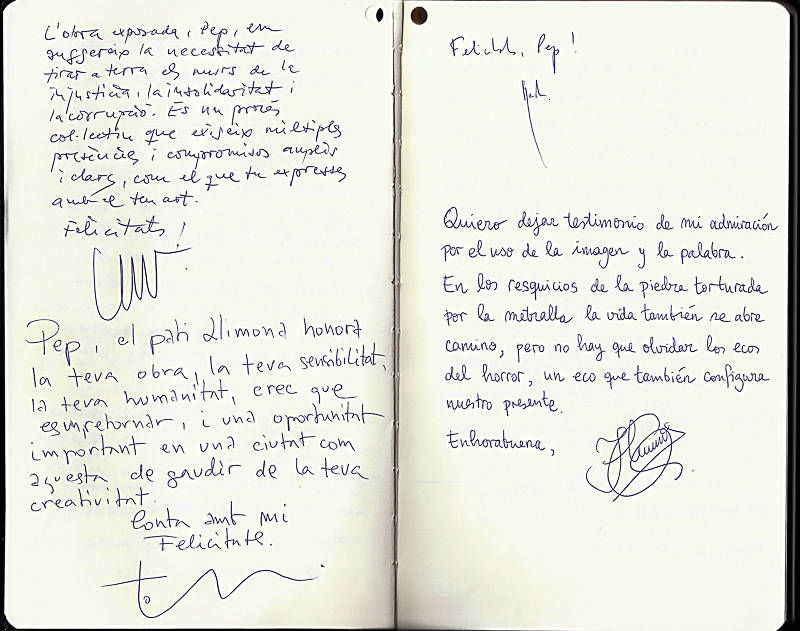 L'obra exposada, Pep, em
suggereix la necessitat de
tirar a terra els murs de la
injustícia, la insolidaritat i
la corrupció. És un procés
col·lectiu que exigeix múltiples
presències i compromisos amplis
i clars, com el que tu expresses
amb el teu art.
Felicitats!
Pep, el pati Llimona honora
la teva obra, la teva sensibilitat,
la teva humanitat, crec que
és un retornar, i una oportunitat
important en una ciutat com
aquesta de gaudir de la teva
creativitat.
Conta amb mi
Felicitats.
Felicitats, Pep!
Quiero dejar testimonio de mi admiración
por el uso de la imagen y la palabra.
En los resquicios de la piedra torturada
por la metralla la vida también se abre
camino, pero no hay que olvidar los ecos
del horror, un eco que también configura
nuestro presente.
Enhorabuena,